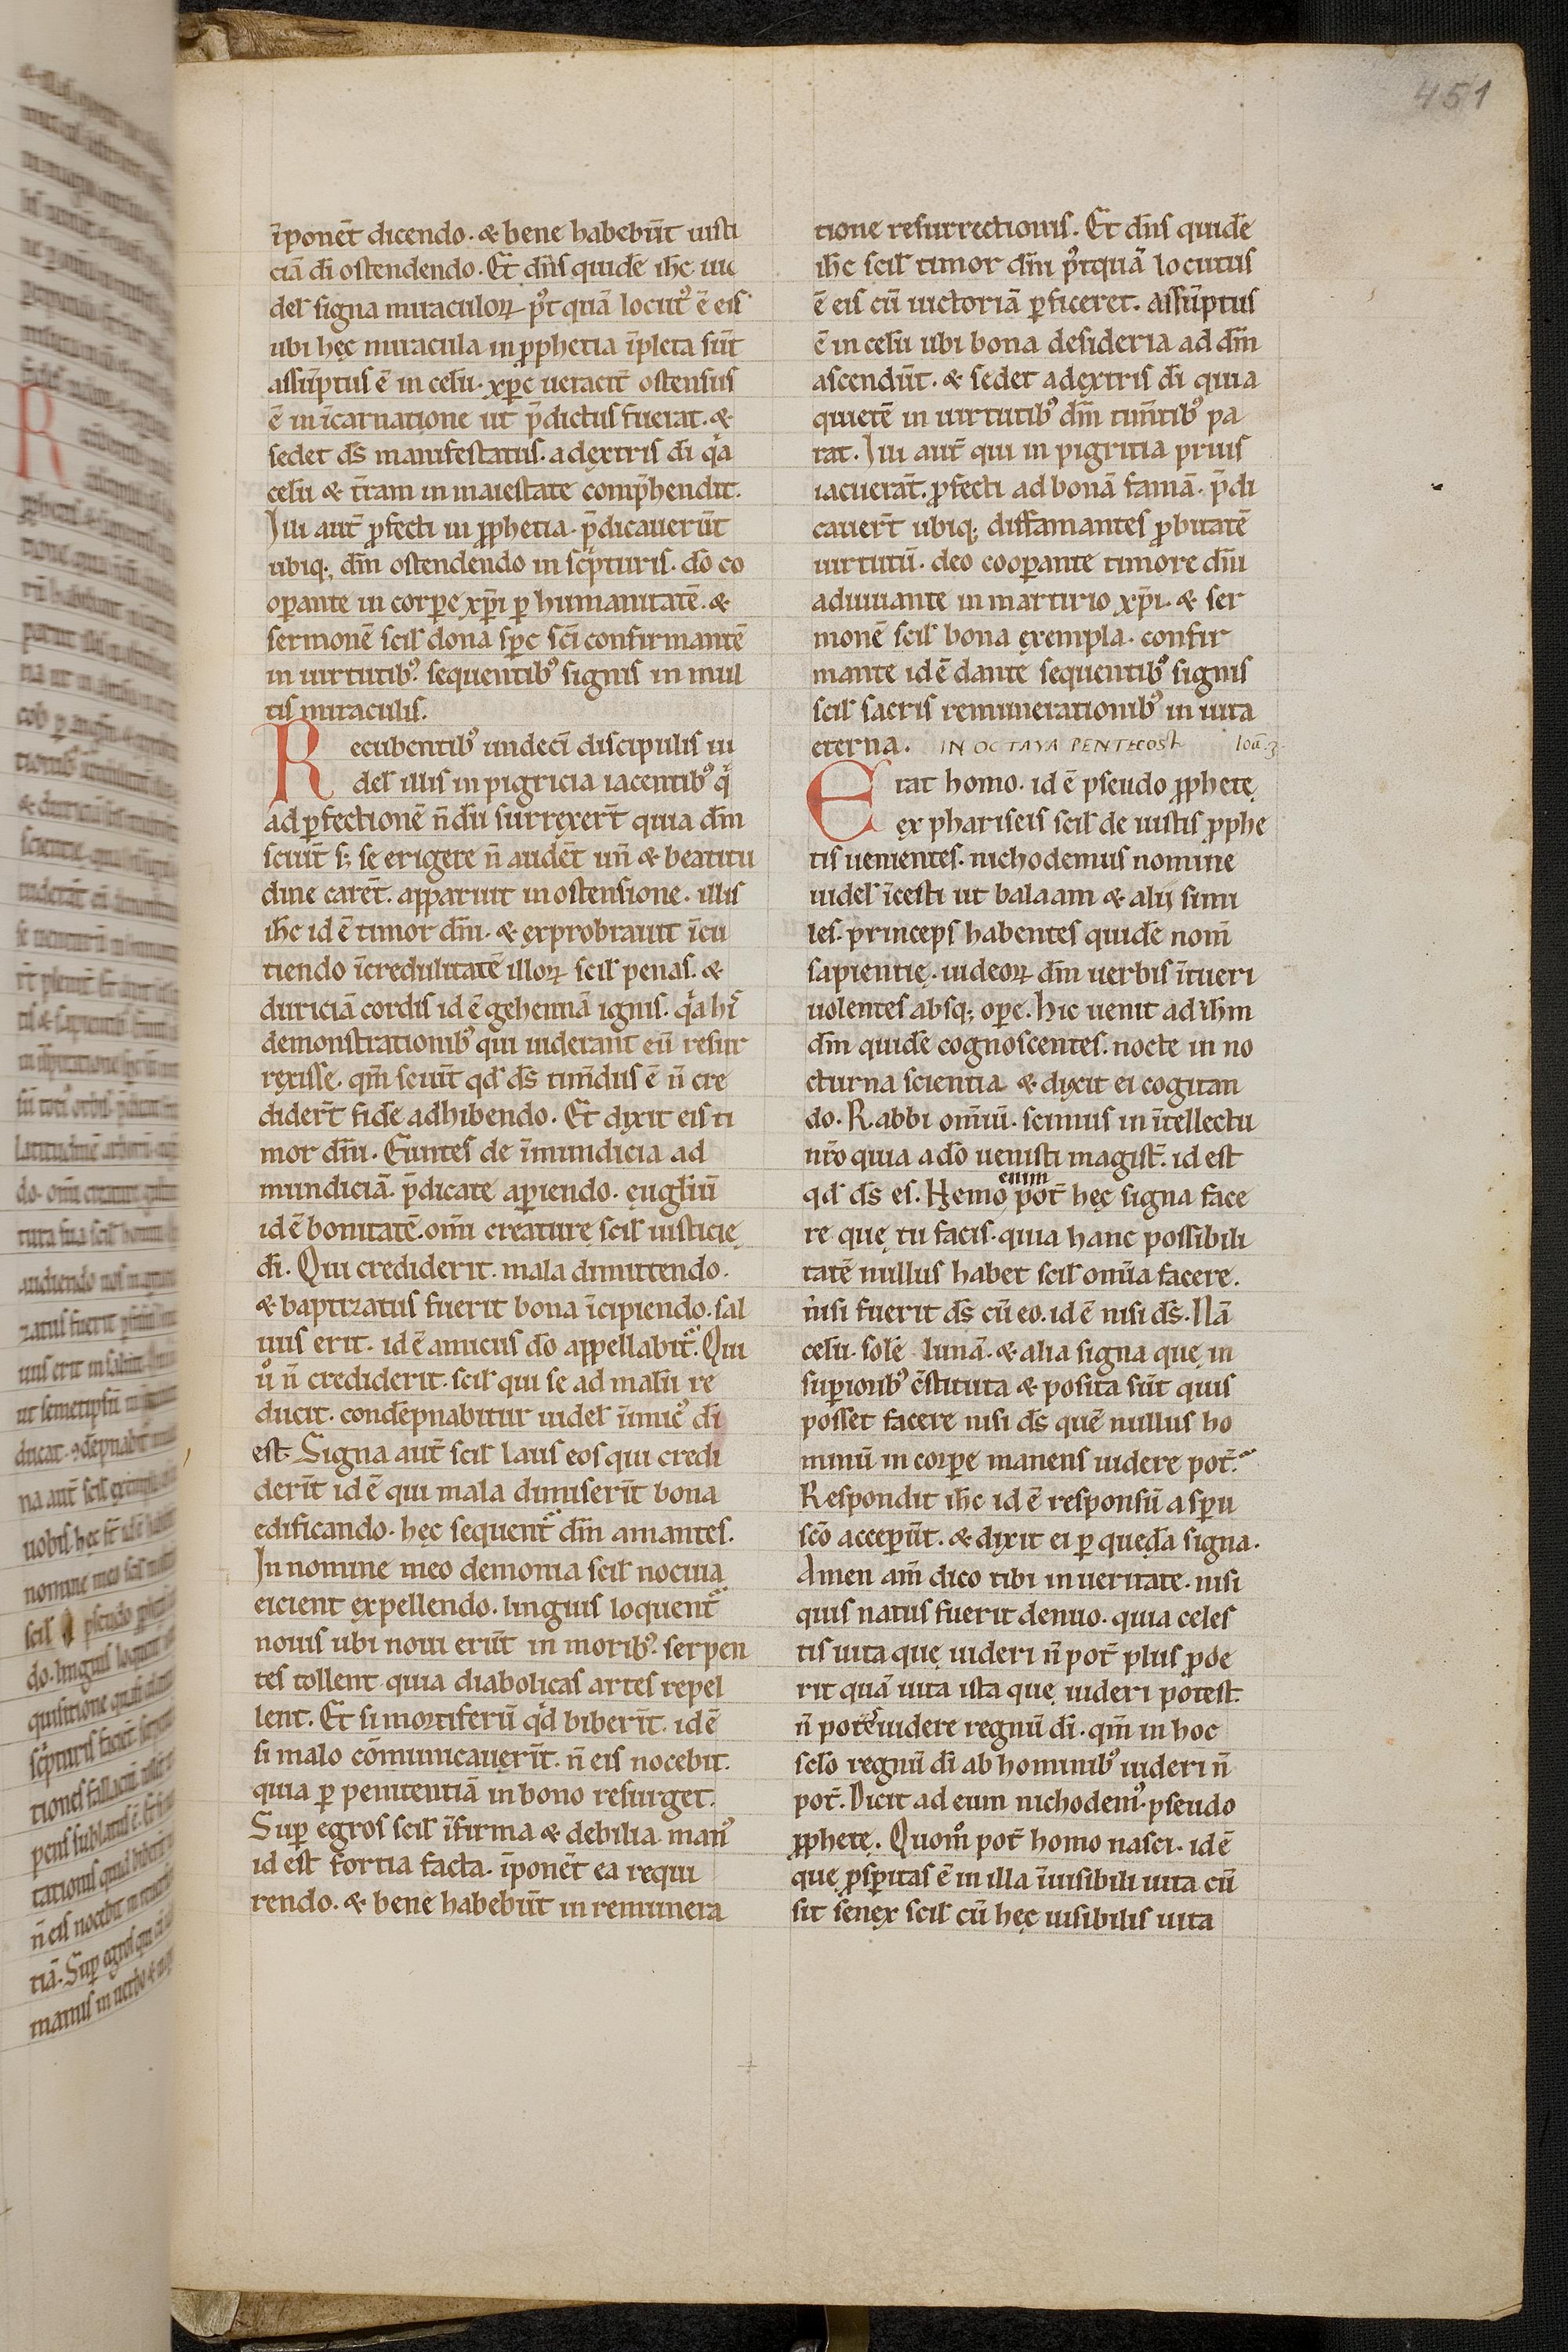 451
i̅ponēt dicendo. & bene habebūt iusti
ciā di̅ ostendendo. Et dn̅s quidē ihc̅ ui
del' signa miraculoꝝ p̾t quā locut᾿ ē eis
ubi hęc miracula in ꝓphetia i̅pleta sūt
assūptus ē in celū. xp̅c ueracit̅ ostensus
ē in i̅carnatione ut p̅dictus fuerat. &
sedet ds̅ manifestatus. a dextris di̅ qͣa
celū & t̅ram in maiestate comp̅hendit.
Illi aut̅ ꝓfecti in ꝓphetia. p̅dicauerūt
ubiq;, dm̅ ostendendo in scͥpturis. do̅ co
oꝑante in corꝑe xp̅i ꝑ humanitatē. &
sermonē scil' dona sp̅c sc̅i confirmantē
in uirtutib᾿. sequentib᾿ signis in mul
tis miraculis.
Recūbentib᾿ undeci̅ discipulis ui
del' illis in pigricia iacentib᾿ qͥ
ad ꝑfectionē n̅dū surrexer̅t quia dm̅
sciūt s; se erigere n̅ audēt un̅ & beatitu
dine carēt. apparuit in ostensione. illis
ihc̅ id ē timor dm̅i. & exprobrauit i̅cu
tiendo i̅credulitatē illoꝝ scil' penas. &
duriciā cordis id ē gehennā ignis. qͣa hi̅s
demonstrationib᾿ qui uiderant eū resur
rexisse. qm̅ sciūt qd̅ ds̅ timēdus ē n̅ cre
dider̅t fidē adhibendo. Et dixit eis ti
mor dm̅i. Euntes de i̅mundicia ad
mundiciā. p̅dicate aꝑiendo. eugl̅iū
id ē bonitatē. om̅i creaturę scil' iusticię
di̅. Qui crediderit. mala dimittendo.
& baptizatus fuerit bona i̅cipiendo. sal
uus erit. id ē amicus do̅ appellabit̅. Qui
uͦ n̅ crediderit. scil' qui se ad malū re
ducit. condēpnabitur uidel' i̅imic᾿ di̅
est. Signa aut̅ scil' laus eos qui credi
deri̅t id ē qui mala dimiseri̅t bona
edificando. hęc sequent̅ dm̅ amantes.
In nomine meo demonia scil' nociua
eicient expellendo. linguis loquent̅
nouis ubi noui erūt in morib᾿. serpen
tes tollent quia diabolicas artes repel
lent. Et si mortiferū qͥd biberi̅t. id ē
si malo cōmunicaueri̅t. n̅ eis nocebit.
quia ꝑ penitentiā in bono resurget.
Suꝑ egros scil' i̅firma & debilia man᾿
id est fortia facta. i̅ponēt ea requi
rendo. & bene habebūt in remunera
tione resurrectionis. Et dn̅s quidē
ihc̅ scil' timor dm̅i p̾tquā locutus
ē eis cū uictoriā ꝑficeret. assūptus
ē in celū ubi bona desideria ad dm̅
ascendūt. & sedet a dextris di̅ quia
quietē in uirtutib᾿ dm̅ tim̅tib᾿ pa
rat. Illi aut̅ qui in pigritia prius
iacuerāt. ꝓfecti ad bonā famā. p̅di
cauer̅t ubiq;. diffamantes ꝓbitatē
uirtutū. deo cooꝑante timore dm̅i
adiuuante in martirio xp̅i. & ser
monē scil' bona exempla. confir
mante id ē dante sequentib᾿ signis
scil' sacris remunerationib᾿ in uita
eterna. IN OCTAVA PENTECOST Ioā. 3.
Erat homo. id ē pseudo ꝓphetę
ex phariseis scil' de iustis ꝓphe
tis uenientes. nichodemus nomine
uidel' i̅cesti ut balaam & alii simi
les. princeps habentes quidē nom̅
sapientię. iudeoꝝ dm̅ uerbis i̅tueri
uolentes absq; oꝑe. Hic uenit ad ih̅m
dm̅ quidē cognoscentes. nocte in no
cturna scientia & dixit ei cogitan
do. Rabbi om̅iū. scimus in i̅tellectu
nr̅o quia a do̅ uenisti magist̅. id est
qd̅ ds̅ es. Nemo enim pot̅ hęc signa face
re quę tu facis. quia hanc possibili
tatē nullus habet scil' om̅ia facere.
nisi fuerit ds̅ cū eo. id ē nisi ds̅. Nā
celū. solē lunā. & alia signa quę in
suꝑiorib᾿ c̅stituta & posita sūt quis
posset facere nisi ds̅ quē nullus ho
minū in corꝑe manens uidere pot̅.
Respondit ihc̅ id ē responsū a sp̅u
sco̅ acceꝑūt. & dixit ei ꝑ quędā signa.
Amen am̅ dico tibi in ueritate. nisi
quis natus fuerit denuo. quia celes
tis uita quę uideri n̅ pot̅ plus ꝓde
rit quā uita ista quę uideri potest.
n̅ poterͥ uidere regnū di̅. qm̅ in hoc
scl̅o regnū di̅ ab hominib᾿ uideri n̅
pot̅. Dicit ad eum nichodem᾿. pseudo
ꝓphetę. Quom̊ pot̅ homo nasci. id ē
quę ꝓsꝑitas ē in illa i̅uisibili uita cū
sit senex scil' cū hęc uisibilis uita